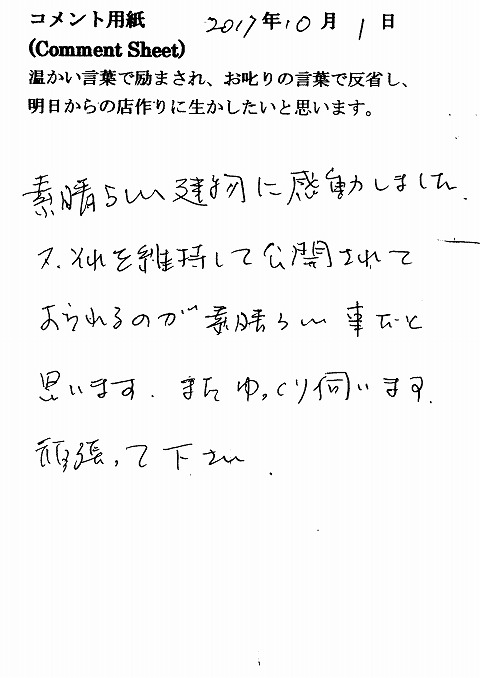 コメント用紙 2017年10月1日
(Comment Sheet)
温かい言葉で励まされ、お叱りの言葉で反省し、
明日からの店作りに生かしたいと思います。
素晴らしい建物に感動しました.
又.それを維持して公開されて
おられるのが素晴らしい事だと
思います. またゆっくり伺います.
頑張って下さい.